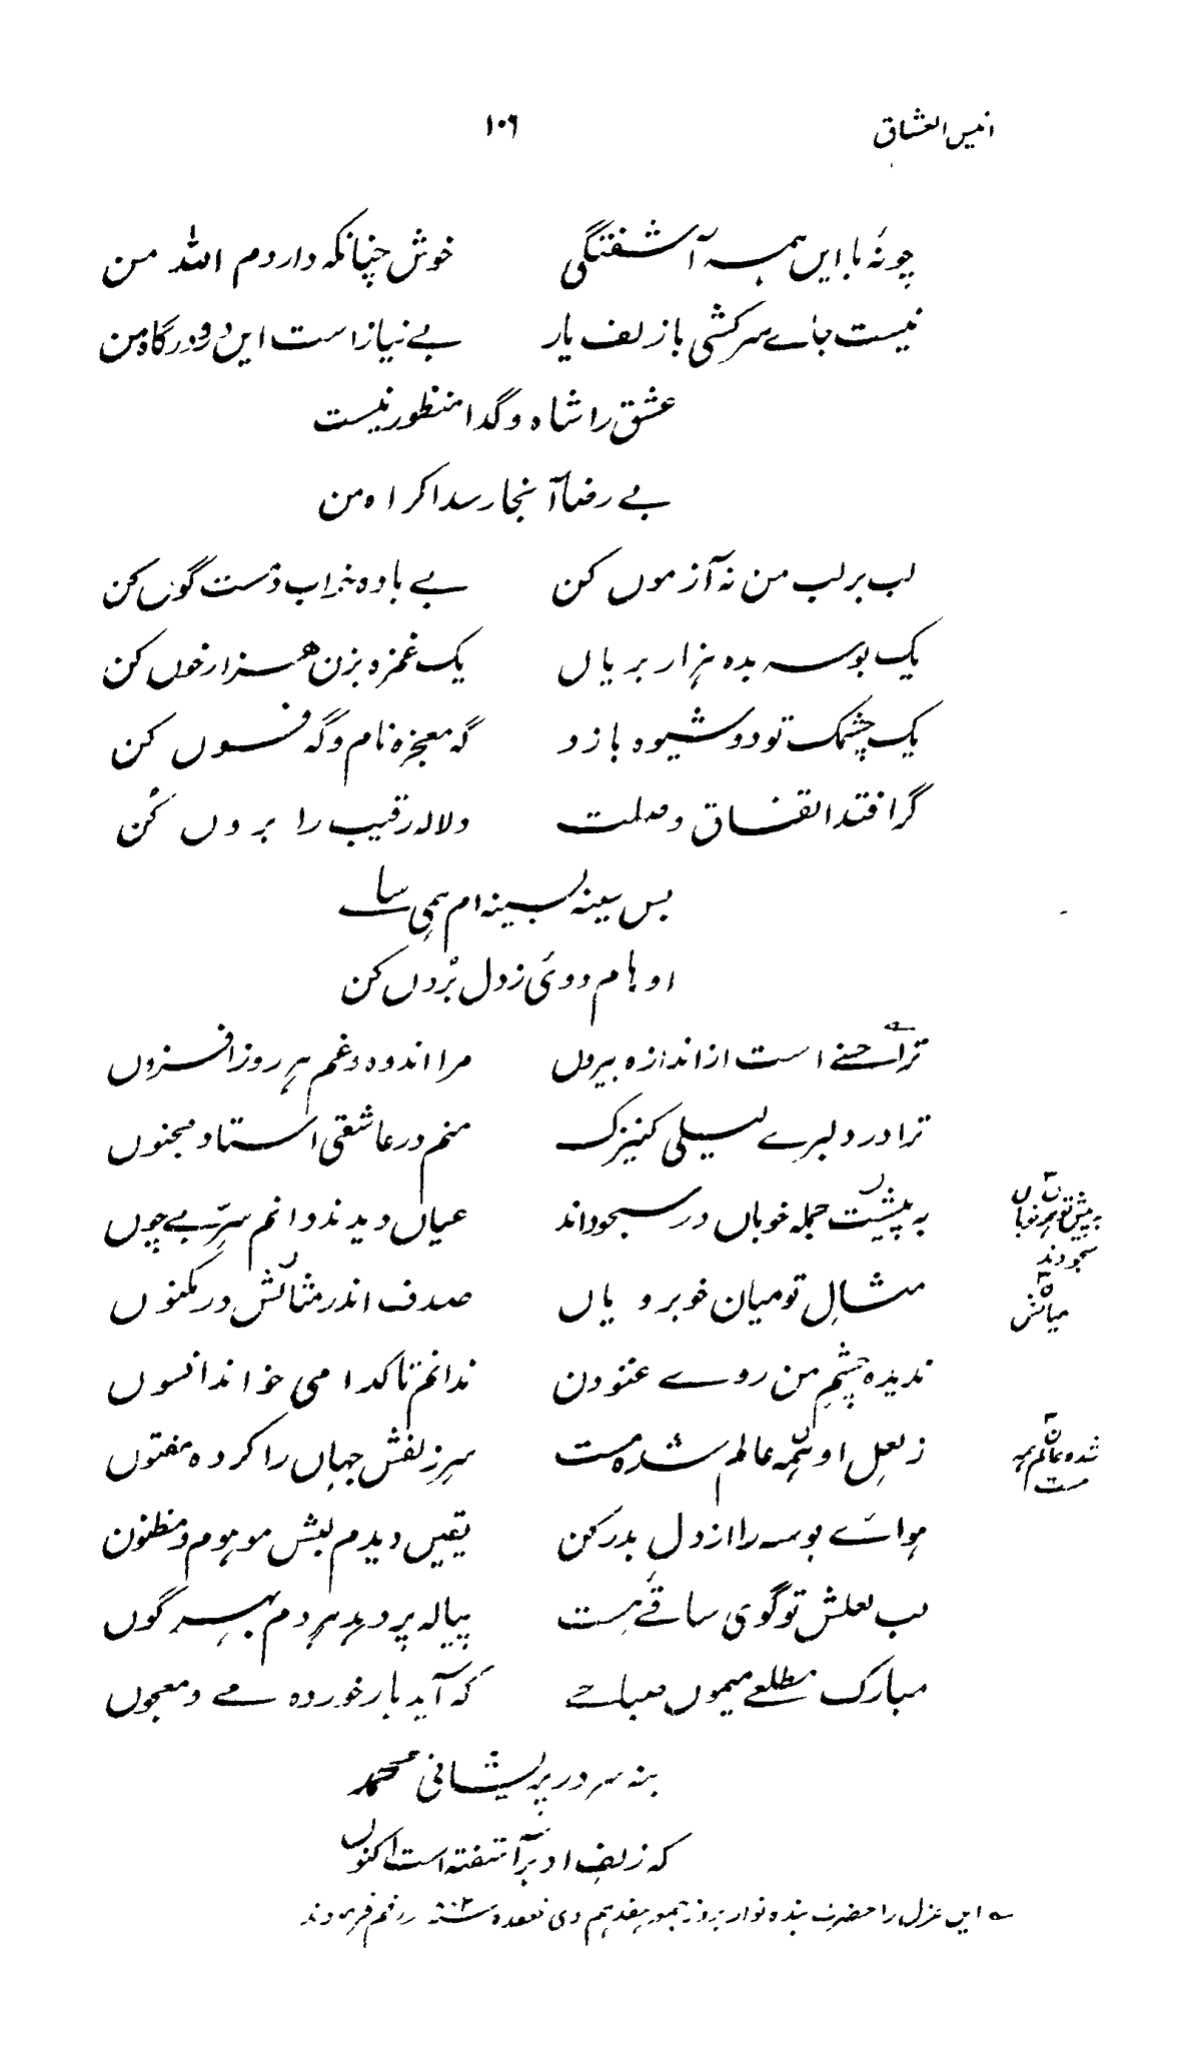 انیس العشاق ۱۰۶
چونۂ با ایں ہمہ آشفتگی خوش چنانکہ داردم اللہ من
نیست جاے سرکشی با زلف یار بے نیاز است ایں درگاہ من
عشق را شاہ و گدا منظور نیست
بے رضا آنجا رسد اکراہ من
لب بر لب من نہ آزموں کن بے بادہ خراب و مست گوں کن
یک بوسہ بدہ ہزار بریاں یک غمزہ بزن ہزار خوں کن
یک چشمک تو دو شیوہ بازد گہ معجزہ نام و گہ فسوں کن
گر افتد اتفاق وصلت دلالہ رقیب را بروں کُن
بس سینہ بسینہ ام ہمی ساے
اوہام دوئی ز دل بُروں کن
ترا حسنے است از اندازہ بیروں مرا اندوہ و غم ہر روز افزوں
ترا در دلبرے لیلی کنیزک منم در عاشقی استاد مجنوں
بہ پیشت جملہ خوباں در سجود اند عیاں دیدند و انم سرِّ بے چوں
بہ پیش تو ہمہ خوباں
سجودند
مثالِ تو میان خوبرویاں صدف اندر مثالش در مکنوں
میانش
ندیدہ چشمِ من روے غنودن ندانم تا کدامی خواند افسوں
ز لعلِ او ہمہ عالم شدہ مست سرِ زلفش جہاں را کردہ مفتوں
شدہ عالم ہمہ
مست
ہواے بوسہ را از دل بدر کن یقیں دیدم لبش موہوم و مظنون
لب لعلش تو گوی ساقئے ہست پیالہ پر دہد ہر دم بہر گوں
مبارک مطلعے میموں صباحے کہ آید یار خوردہ مے و معجوں
بنہ سر در پریشانی محمدؐ
کہ زلفِ او بر آشفتہ است اکنوں
ایں غزل را حضرت بندہ نواز بروز جمعہ ہفدہم ذی قعدہ سنہ ۸۰۲ رقم فرمودند